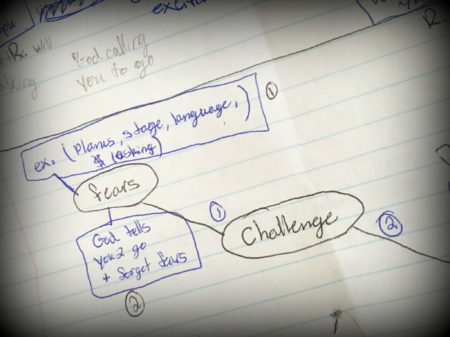 excite
well
God calling
you to go
ex. (planes, stage, language,
$ (asking)
①
fears
God tells
you 2 go
+ forget fears
②
①
Challenge
②
R.